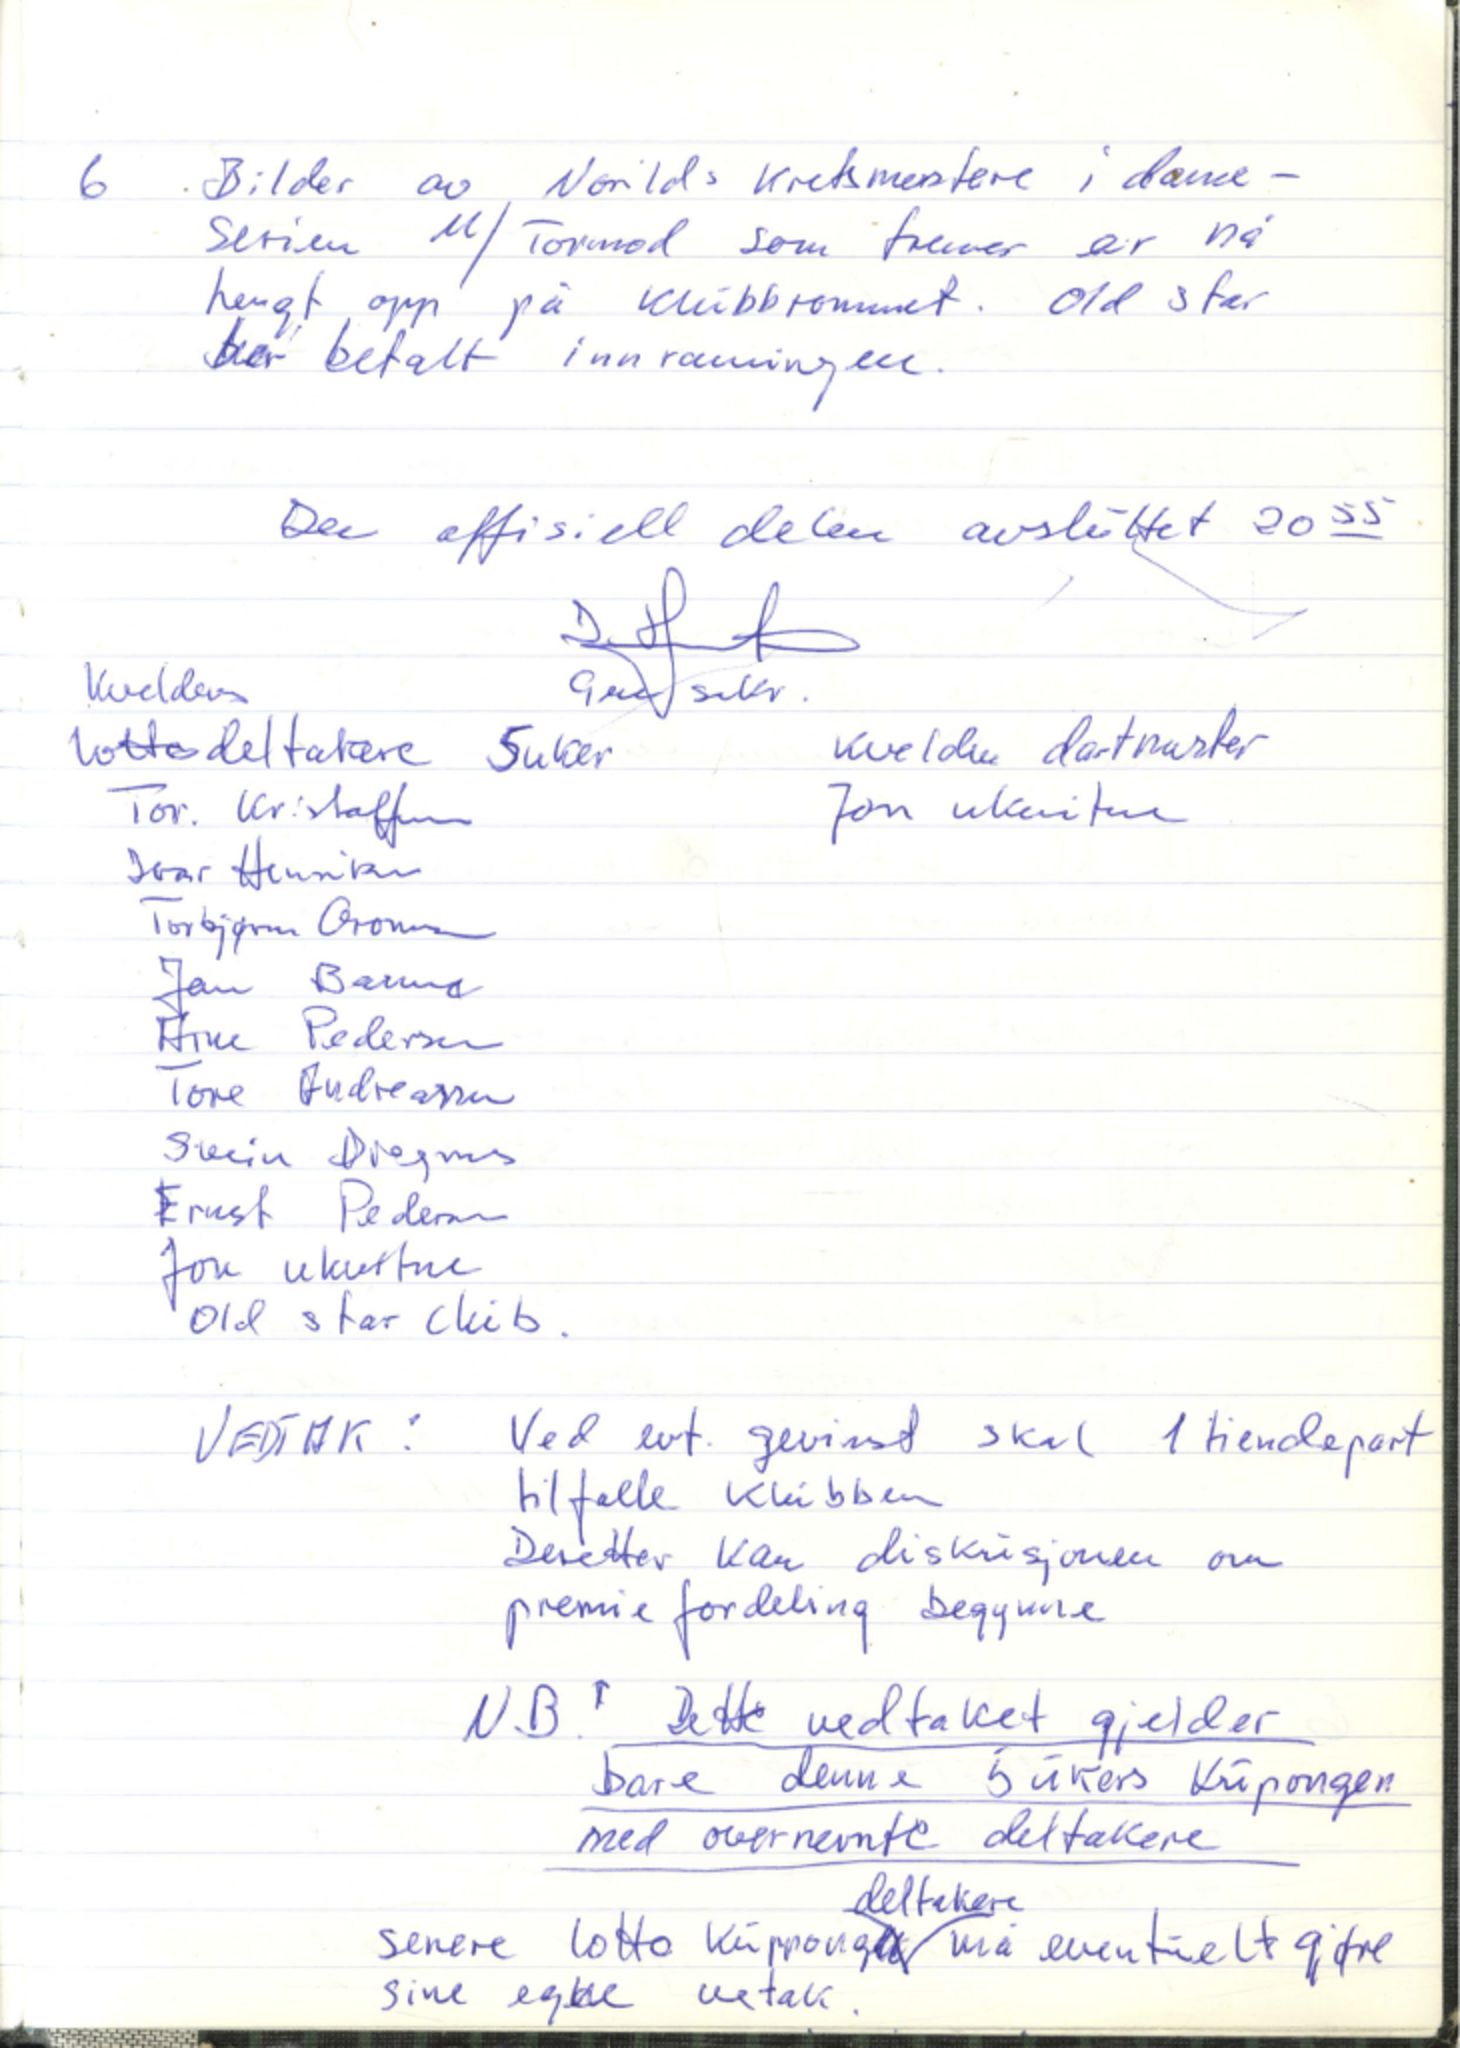 6 Bilder av Norilds Kretsmestere i dame-
serien M/ Tormod som trener er nå
hengt opp på klubbrommet. Old star
har betalt innramingen.
Den offisiell delen avsluttet 20 55
Gen sekr.
Kveldens
Lottodeltakere 5 uker
kvelden dartmester
Tor. Kristoffersen
Jon ukvitne
Ivar Henriksen
Torbjørn
Jan
Arne Pedersen
Tore Andreassen
Svein
Ernst Pedersen
Jon ukvitne
Old star club.
VEDTAK: Ved evt. gevinst skal 1 tiendepart
tilfalle klubben
Deretter kan diskusjonen om
premiefordeling begynne
N.B! Dette vedtaket gjelder
bare denne 5 ukers kupongen
med overnevnte deltakere
deltakere
senere lotto kuppong må eventuelt gjøre
sine egne vetak.